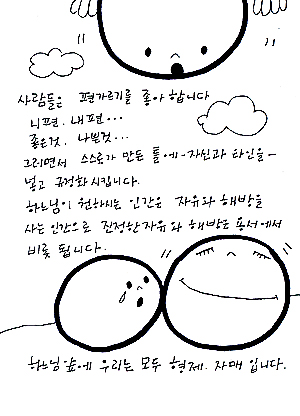 사람들은 편가르기를 좋아 합니다
니편. 내편...
좋은것. 나쁜것...
그러면서 스스로가 만든 틀에 - 자신과 타인을 -
넣고 규정화 시킵니다.
하느님이 원하시는 인간은 자유와 해방을
사는 인간으로 진정한 자유와 해방은 용서에서
비롯 됩니다.
하느님 앞에 우리는 모두 형제. 자매 입니다.